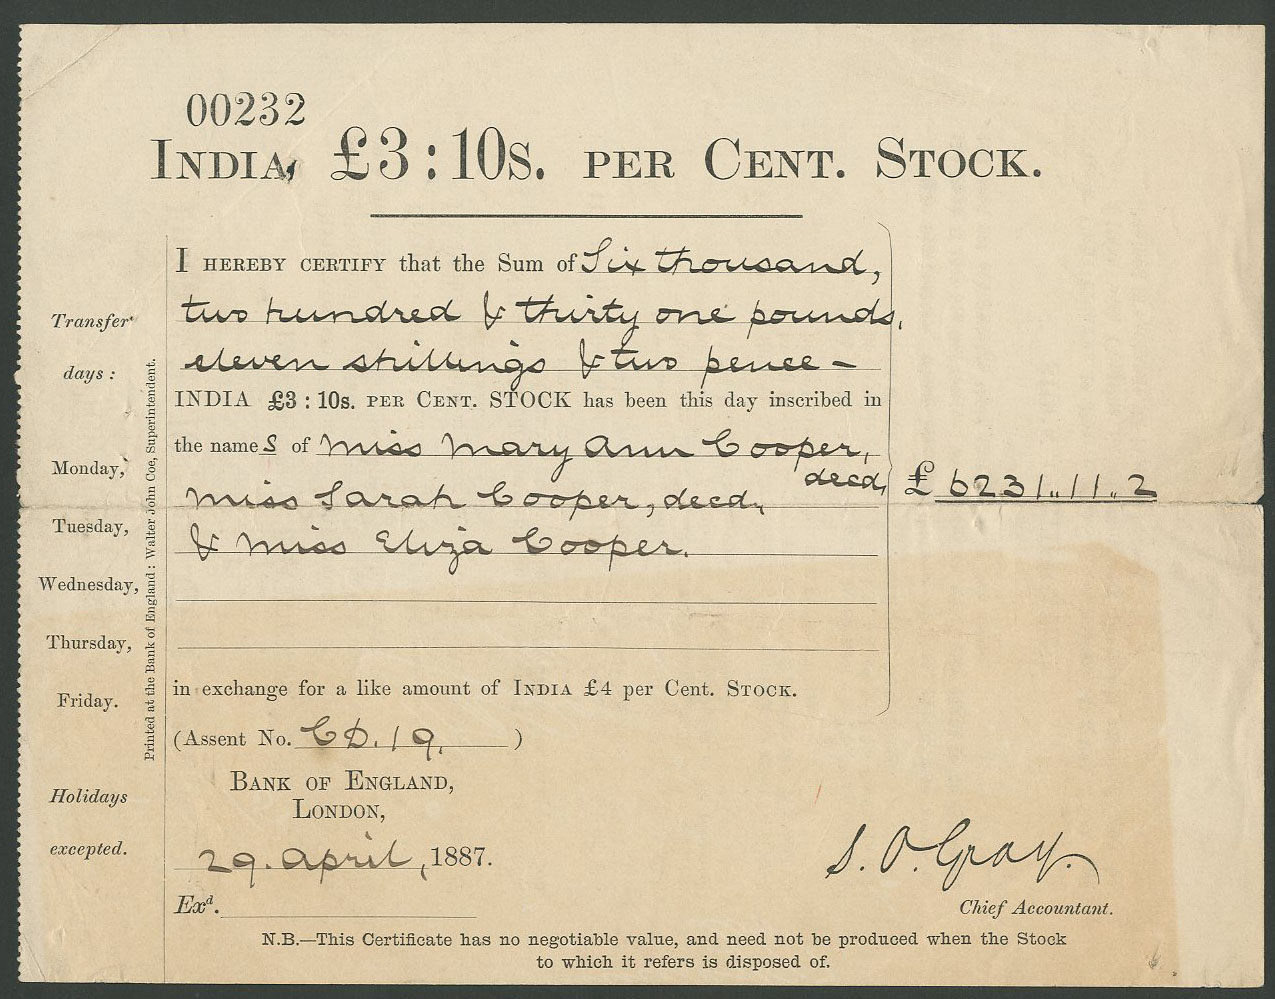 00232
INDIA, £3 : 10s. PER CENT. STOCK.
I HEREBY CERTIFY that the Sum of Six thousand,
two hundred & thirty one pounds,
eleven shillings & two pence –
INDIA £3 : 10s. PER CENT. STOCK has been this day inscribed in
the names of Miss Mary Ann Cooper,
decd,
Miss Sarah Cooper, decd,
& Miss Eliza Cooper.
£ 6231..11..2
in exchange for a like amount of INDIA £4 per Cent. STOCK.
(Assent No. CD. 19. )
BANK OF ENGLAND,
LONDON,
29. April, 1887.
Exd.
S. O. Gray.
Chief Accountant.
N.B.—This Certificate has no negotiable value, and need not be produced when the Stock
to which it refers is disposed of.
Transfer
days :
Monday,
Tuesday,
Wednesday,
Thursday,
Friday.
Holidays
excepted.
Printed at the Bank of England: Walter John Coe, Superintendent.